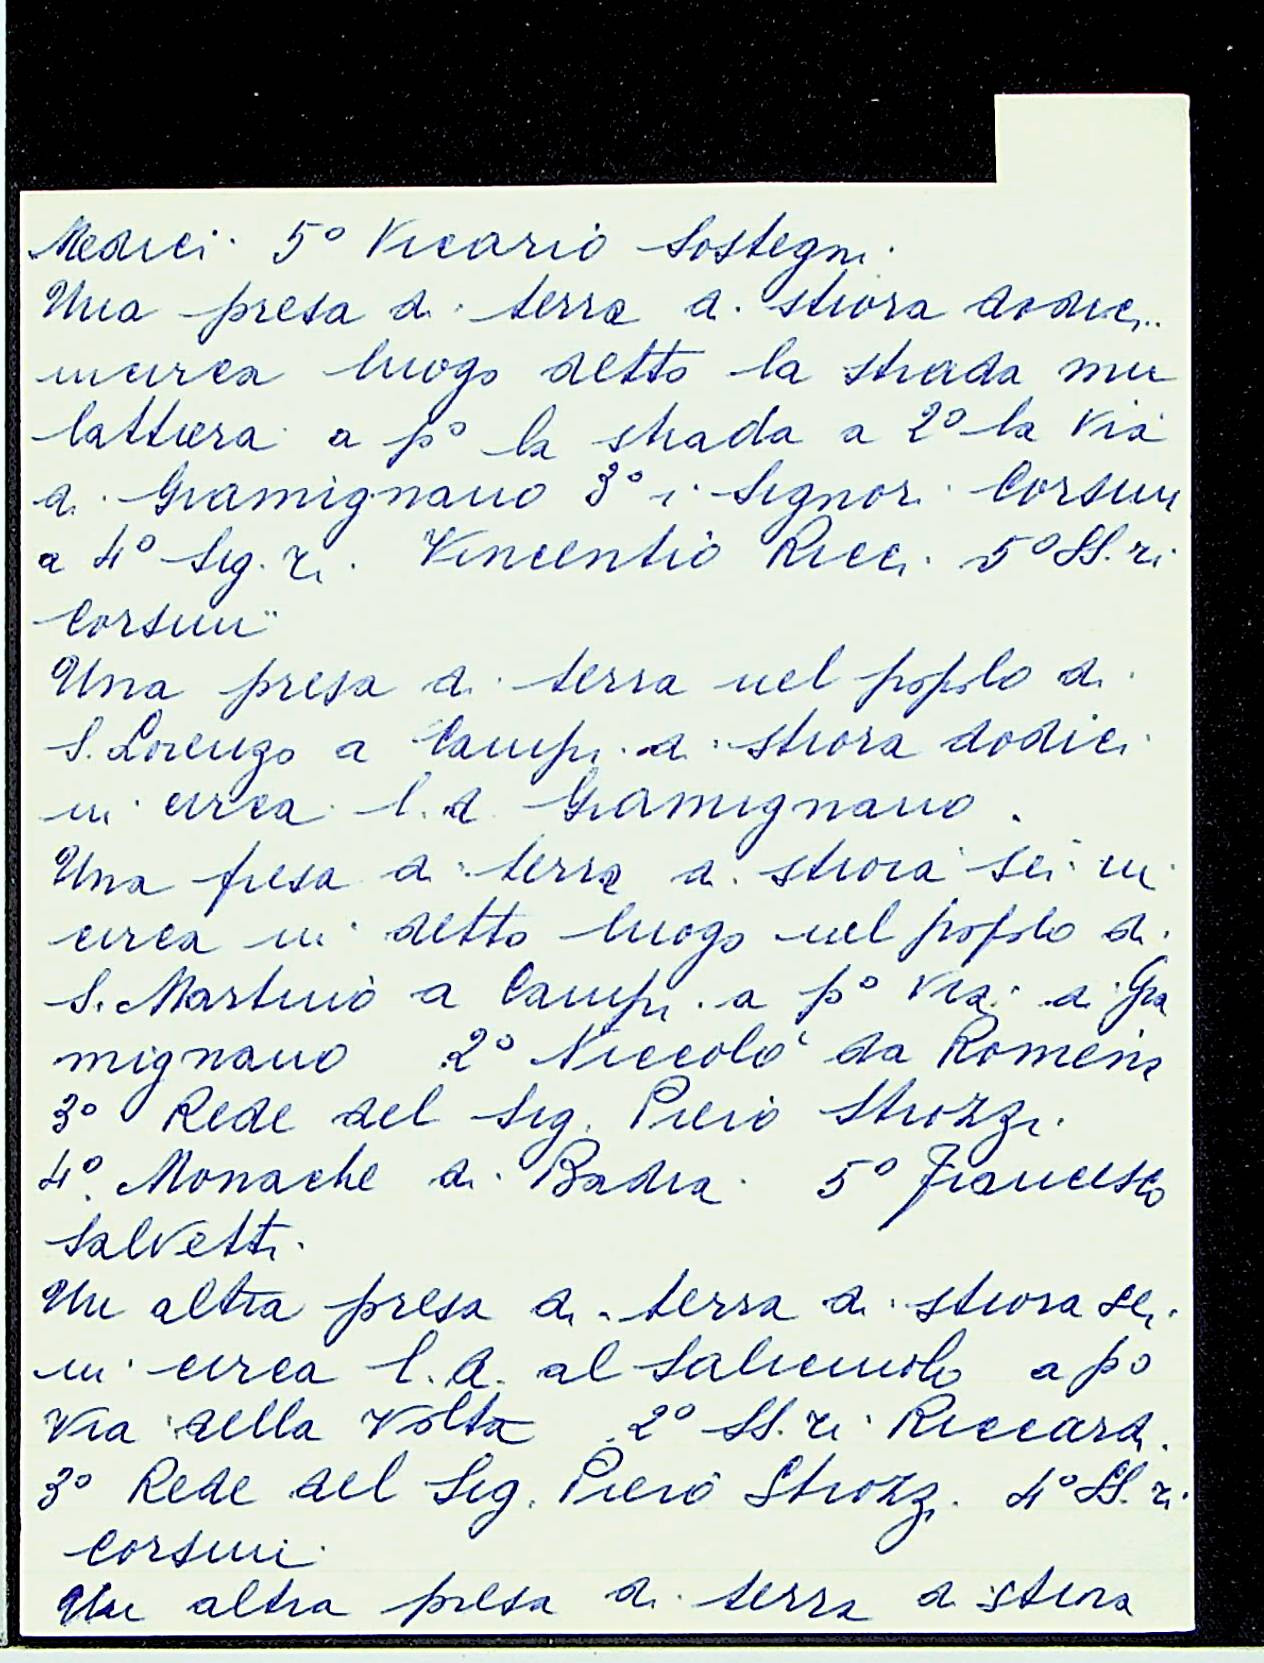 Medici. 5° Vicario Sostegni.
Una presa di terra di stiora dodici
incirca luogo detto la strada mu
lattiera a p° la strada a 2° la Via
di Gramignano 3° i Signori Corsini
a 4° Sig.ri Vincentio Ricci. 5° SS.ri
Corsini
Una presa di terra nel popolo di
S. Lorenzo a Campi di stiora dodici
in circa l.d. Gramignano.
Una presa di terra di stiora sei in
circa in detto luogo nel popolo di
S. Martino a Campi a p° Via di Gra
mignano 2° Niccolò da Romena
3° Rede del Sig. Piero Strozzi.
4° Monache di Badia. 5° Francesco
Salvetti.
Un altra presa di terra di stiora sei
in circa l.d. al a p°
Via della Volta 2° SS.ri Riccardi.
3° Rede del Sig. Piero Strozzi. 4° SS.ri
Corsini.
Un altra presa di terra di stiora